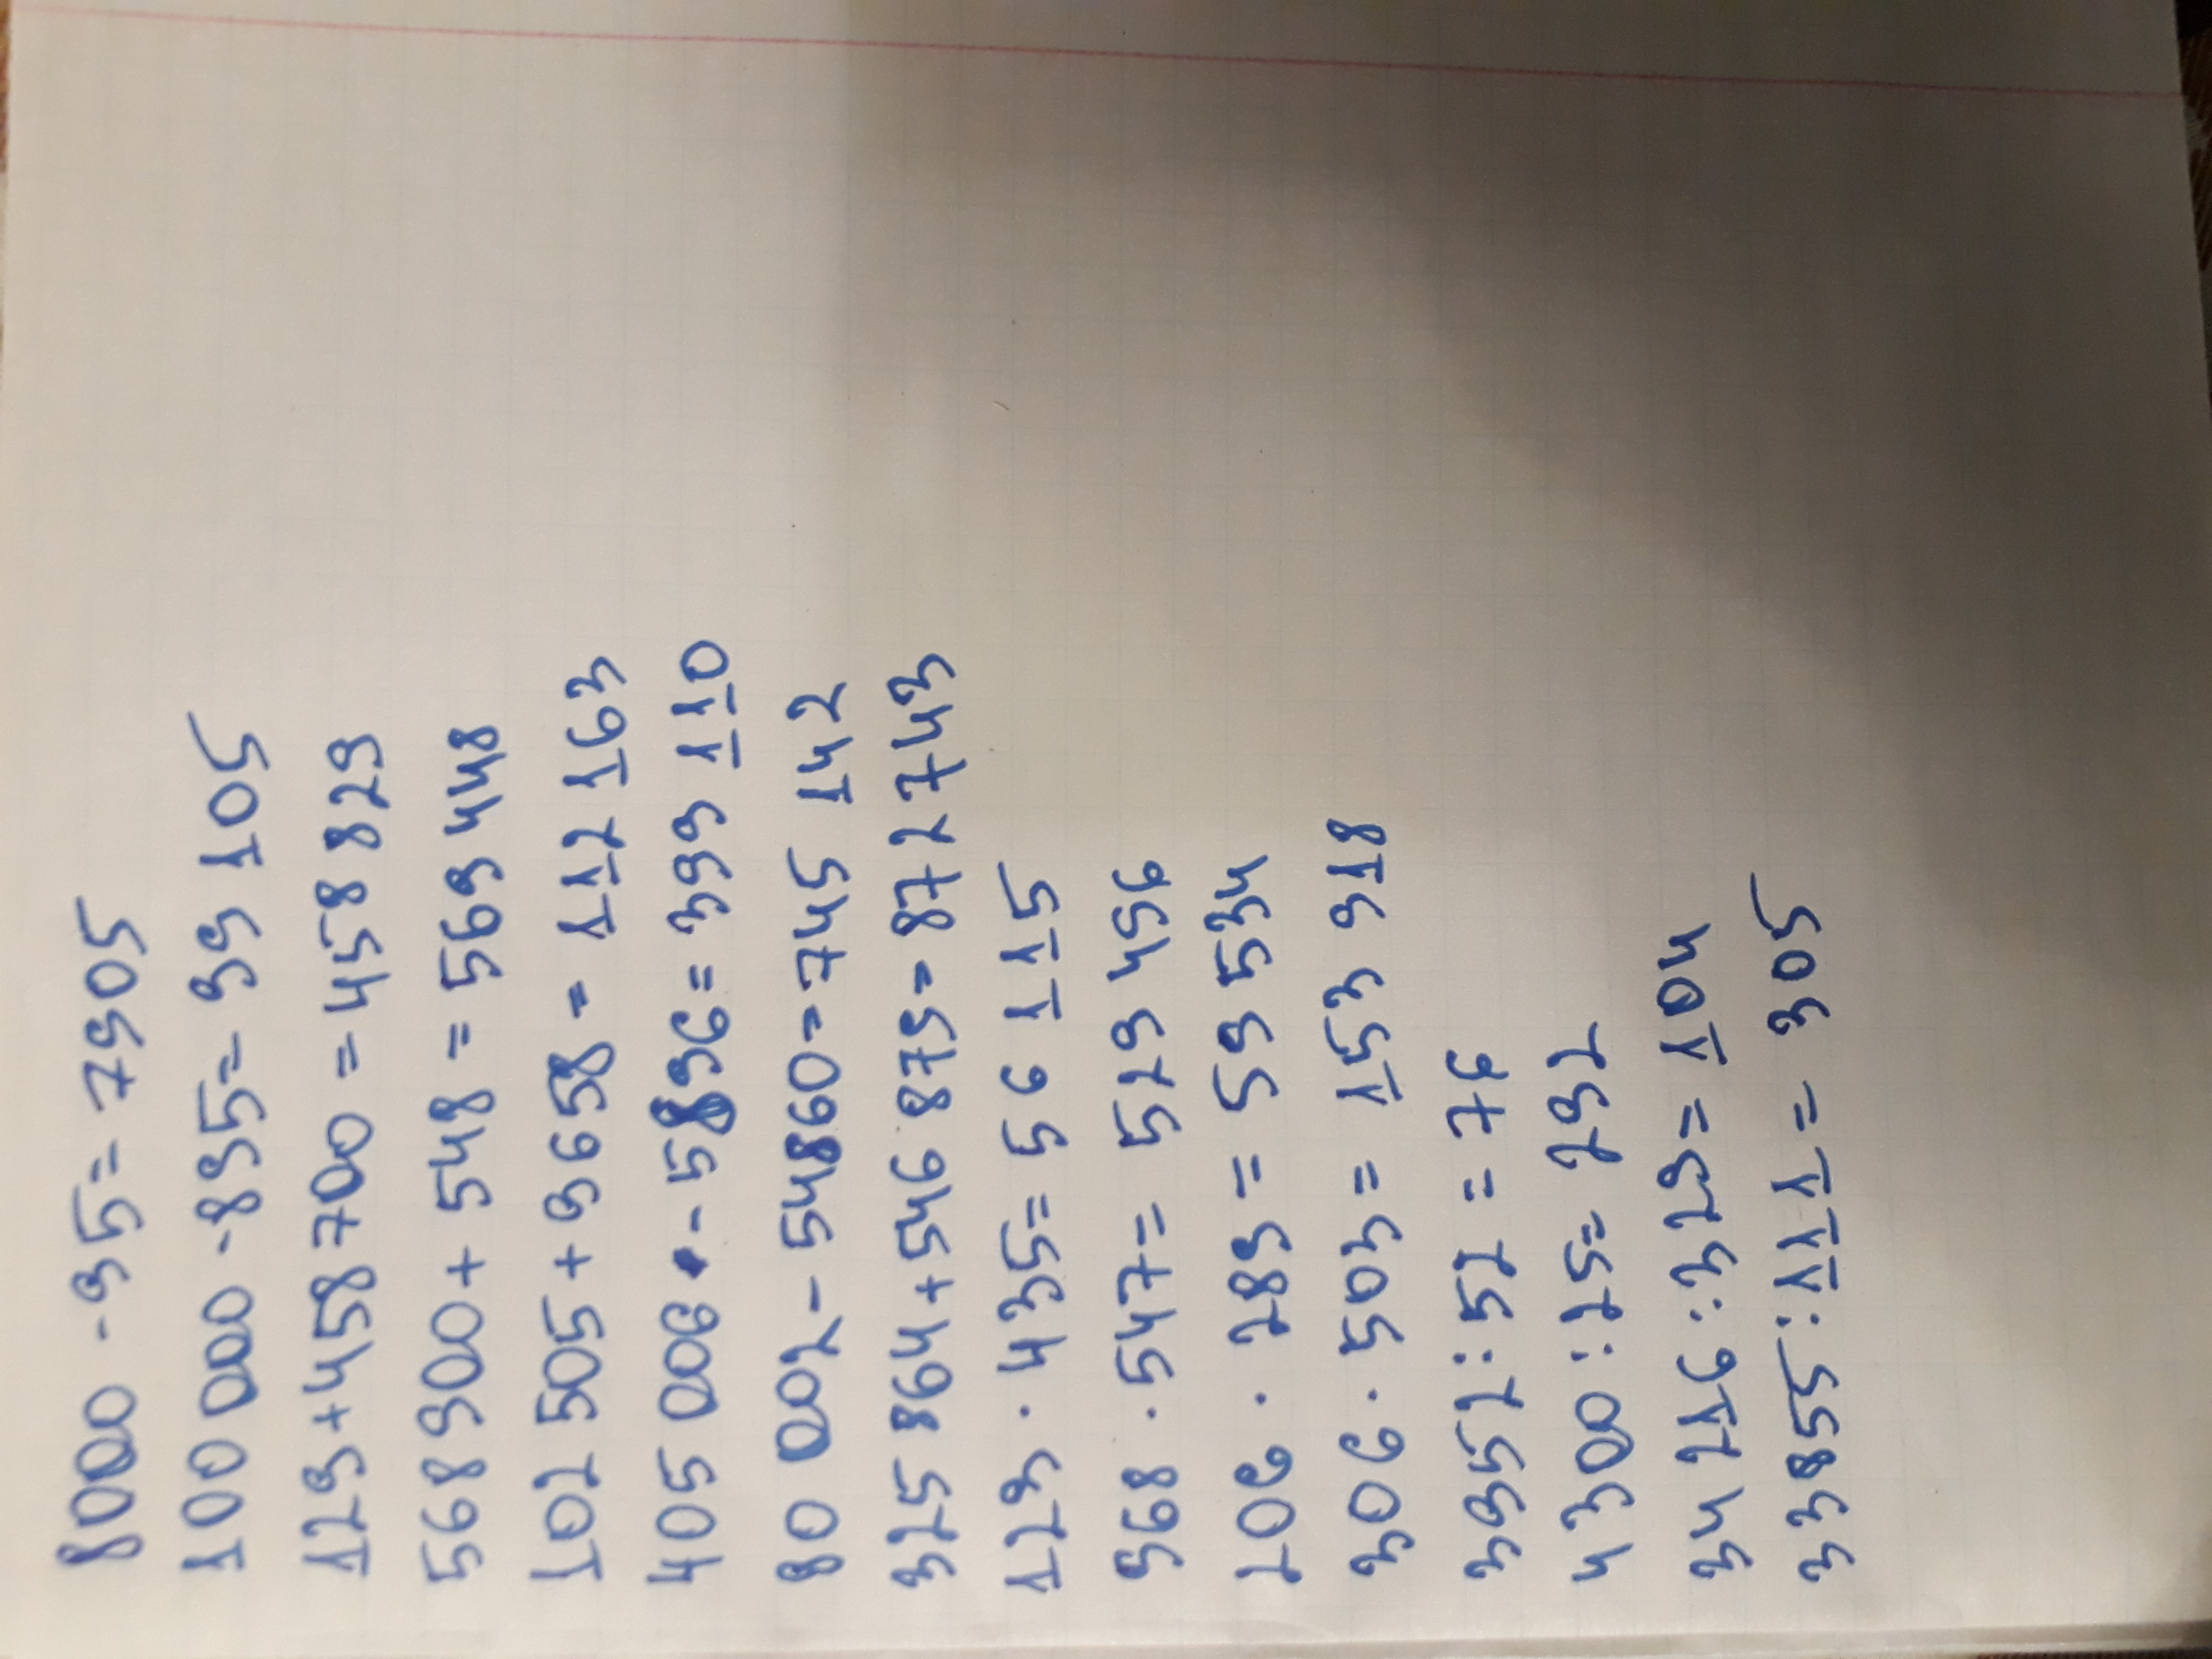 8000 - 95 = 7905
100 000 - 895 = 99 105
129 + 458 700 = 458 829
568900 + 548 = 569 448
102 505 + 9658 = 112 163
405 006 - 5896 = 399 110
800 002 - 54860 = 745 142
325 864 + 546 879 = 872 743
129 · 435 = 56 115
968 · 547 = 529 496
206 · 289 = 59 534
306 · 503 = 153 918
3952 : 52 = 76
4300 : 25 = 292
34216 : 329 = 104
33855 : 111 = 305